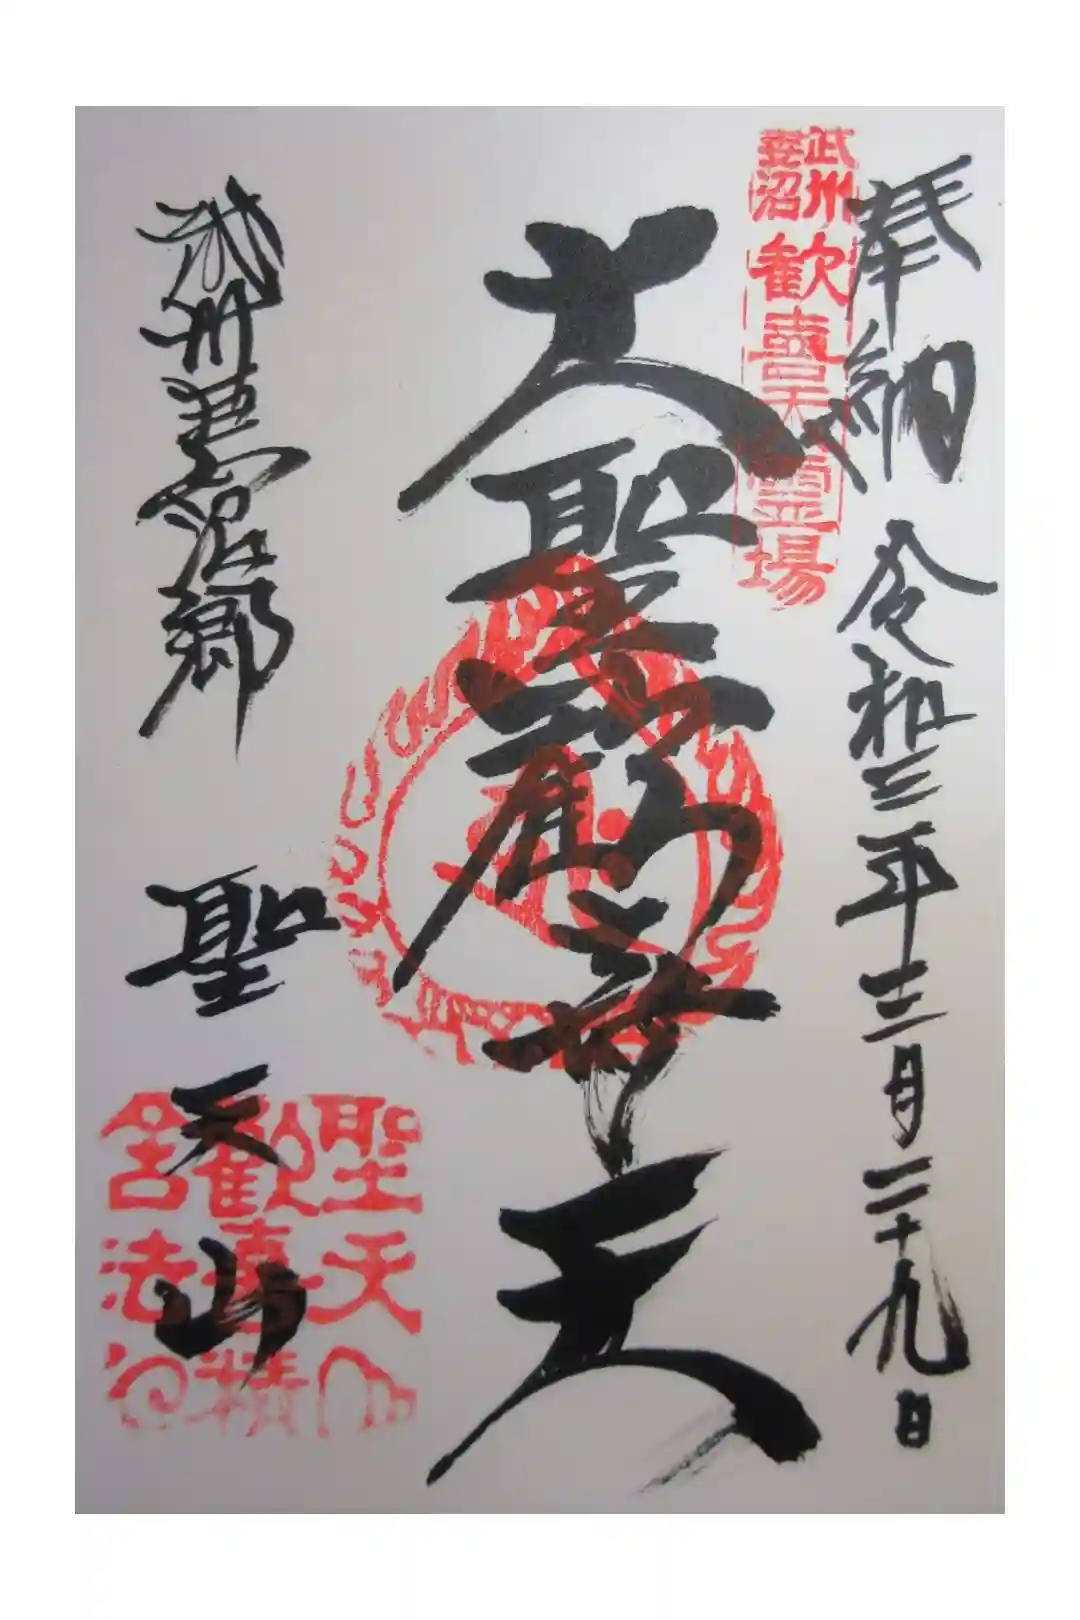 奉納 令和三年十二月二十九日
武州
妻沼
歓喜天霊場
大聖歓喜天
武州妻沼郷 聖天山
聖天山
歓喜精
舎法印